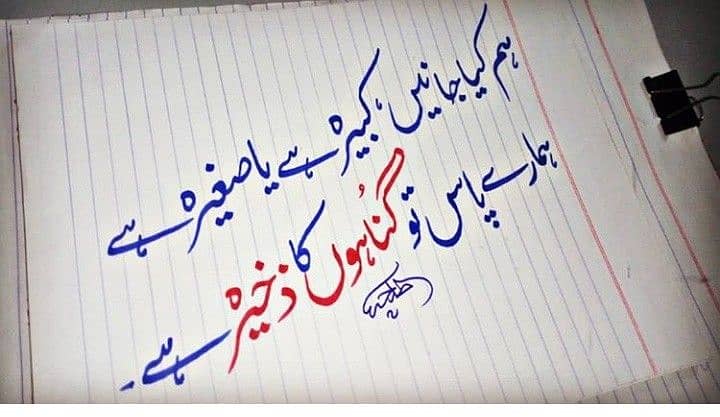 ہم کیا جانیں، کبیرہ ہے یا صغیرہ ہے
ہمارے پاس تو گناہُوں کا ذخیرہ ہے۔